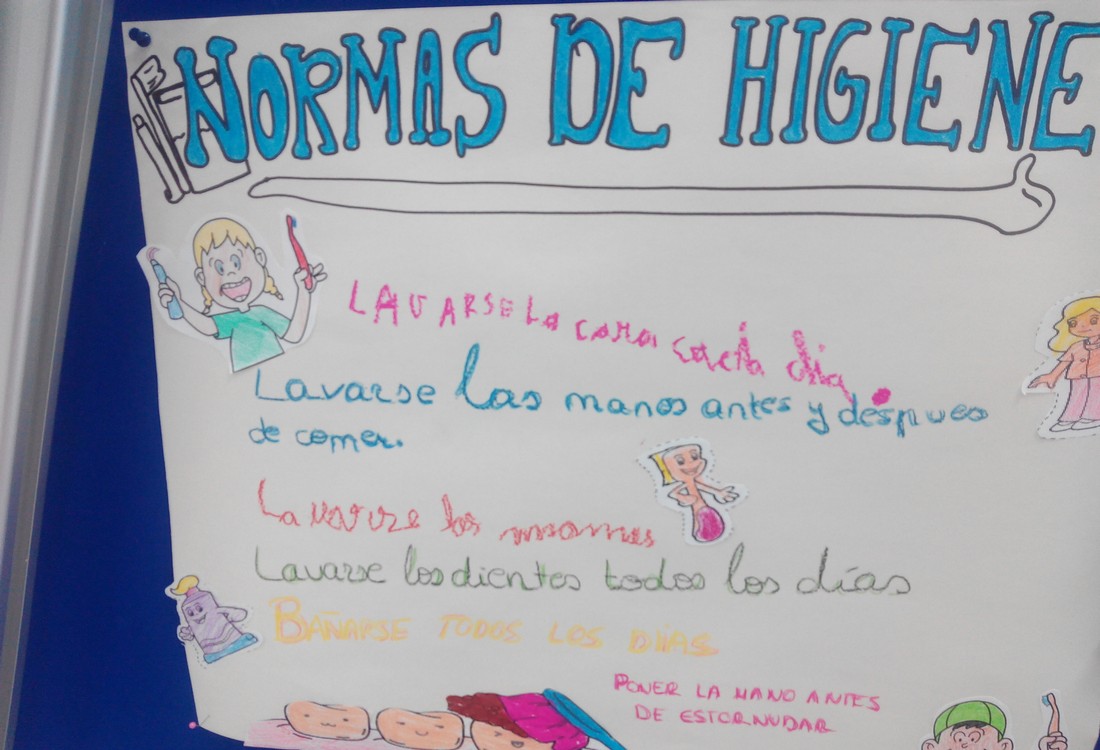 NORMAS DE HIGIENE
LAVARSE LA cara cada dia.
Lavarse las manos antes y despues
de comer.
Lavarze las manos
Lavarse los dientes todos los días
BAÑARSE TODOS LOS DÍAS
PONER LA MANO ANTES
DE ESTORNUDAR